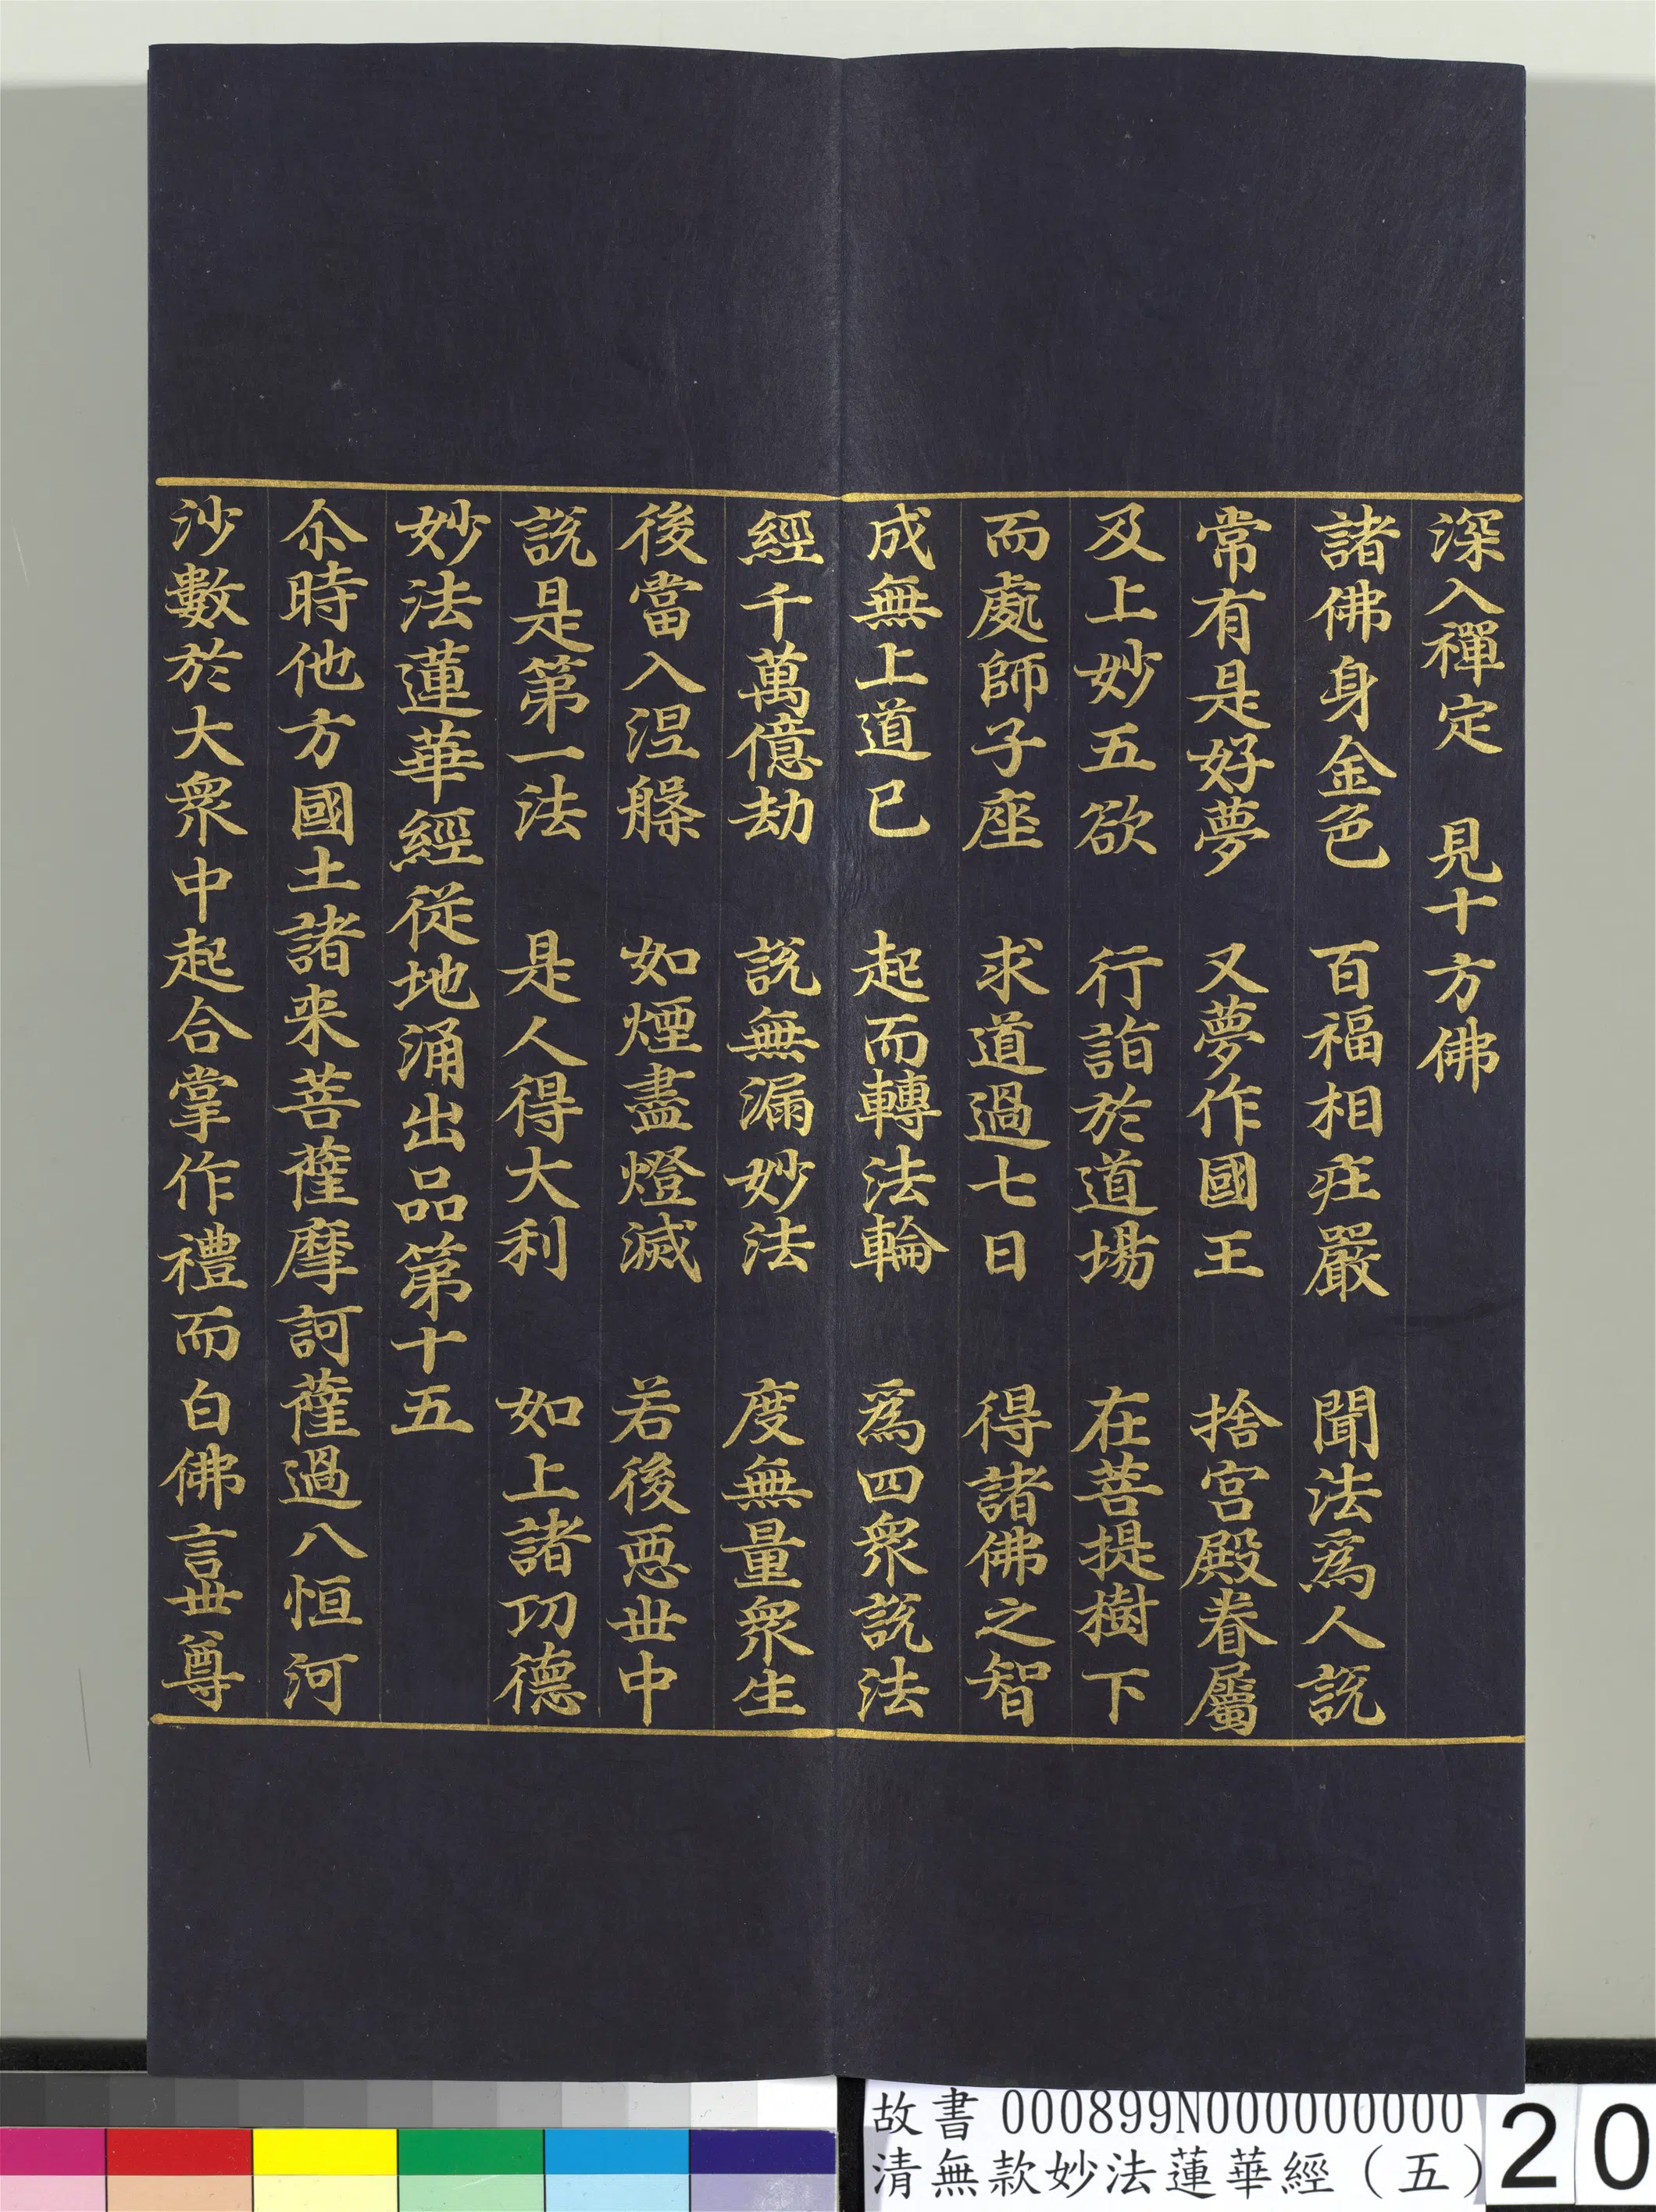 深入禪定　見十方佛
諸佛身金色　百福相疰嚴　聞法爲人說
常有是好夢　又夢作國王　捨宮殿眷屬
及上妙五欲　行詣於道場　在菩提樹下
而處師子座　求道過七日　得諸佛之智
成無上道已　起而轉法輪　爲四衆説法
經千萬億劫　說無漏妙法　度無量衆生
後當入涅槃　如煙盡燈滅　若後惡世中
說是第一法　是人得大利　如上諸功德
妙法蓮華經從地涌出品第十五
尒時他方國土諸来菩薩摩訶薩過八恒河
沙數於大衆中起合掌作禮而白佛言世尊
故書 000899N000000000
清無款妙法蓮華經（五）
20